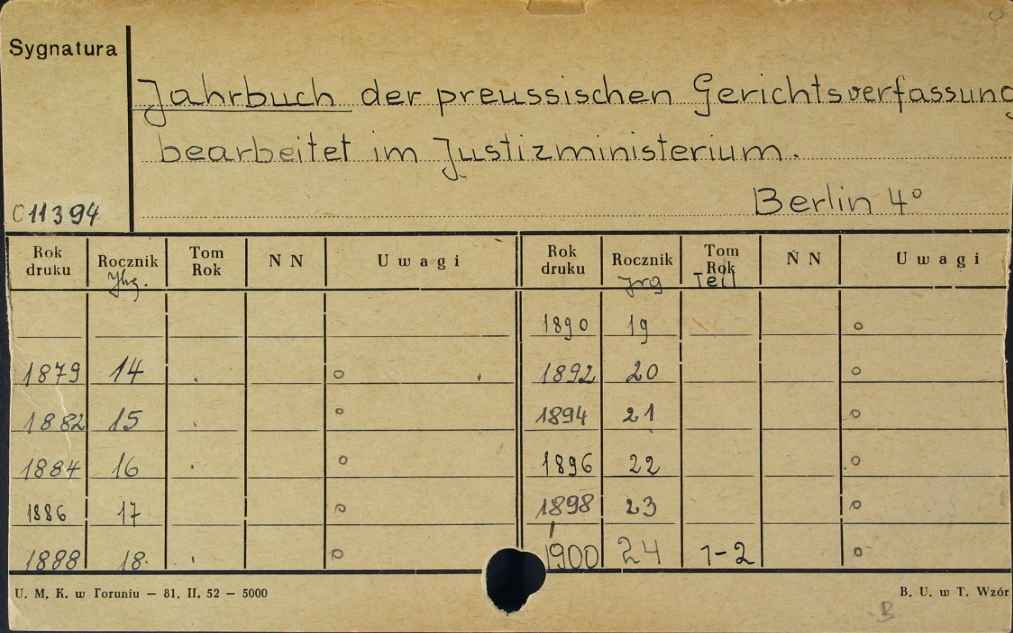 Sygnatura
Jahrbuch der preussischen Gerichtsverfassung
bearbeitet im Justizministerium.
Berlin 4°
C 11394
Rok druku Rocznik Tom Rok N N Uwagi Rok druku Rocznik Tom Rok N N Uwagi
Jhg. Jrg Teil
1890 19 o
1879 14 o 1892 20 o
1882 15 o 1894 21 o
1884 16 o 1896 22 o
1886 17 o 1898 23 o
1888 18. o 1900 24 1-2 o
U. M. K. w Toruniu — 81. II. 52 — 5000 B. U. w T. Wzór
B